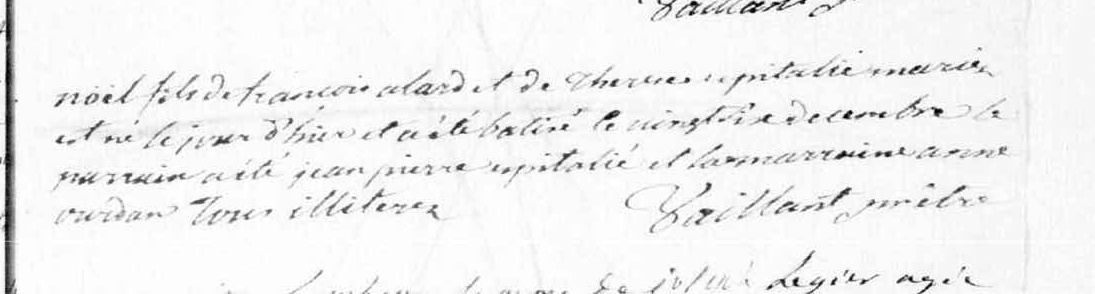 Vaillant p
noël fils de francois alard et de therese espitalié mariez
est né le jour d'hier et a été batisé le vingt six decembre le
parrain a été jean pierre espitalié et la marraine anne
ourdan tous illiterez
Vaillant prêtre
de Legier agée